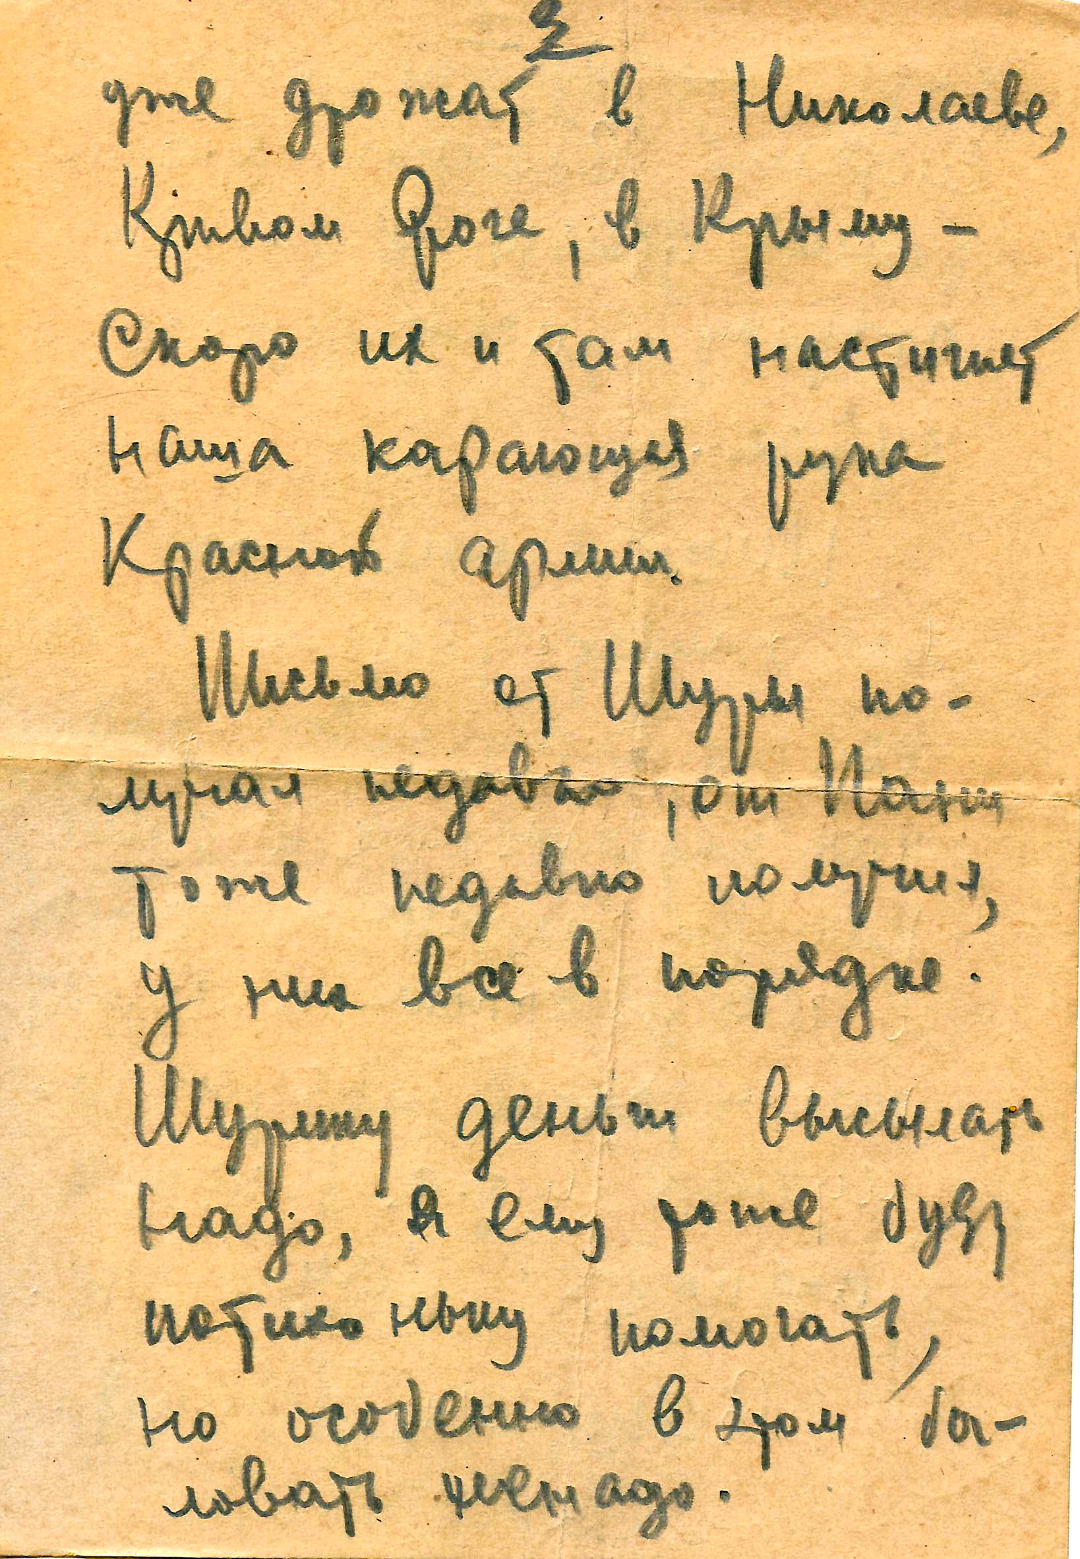 2
уже дрожат в Николаеве,
Кривом Роге, в Крыму –
Скоро их и там настигнет
наша карающая рука
Красной армии.
Письмо от Шуры по-
лучал недавно, от Пани
тоже недавно получил,
у них все в порядке.
Шурику деньги высылать
надо, я ему тоже буду
потихоньку помогать,
но особенно в этом ба-
ловать ненадо.